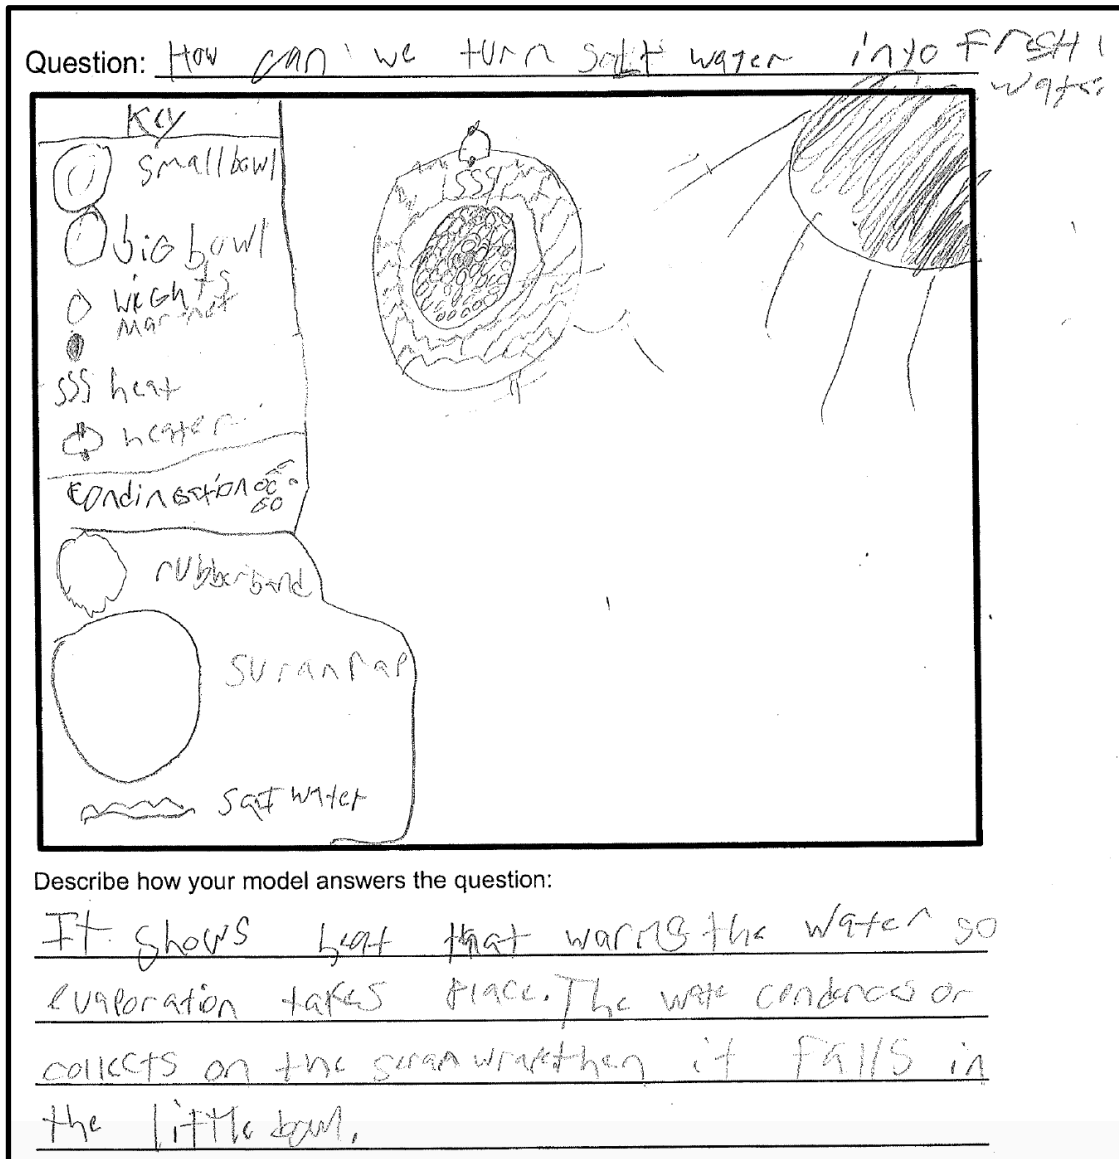 Question: How can we turn salt water inyo FrESH
water
Key
small bowl
biG bowl
wieGhts
marnet
SSS heat
heater
Condinsation
rubberband
suranrap
SSS
salt water
Describe how your model answers the question:
It shows heat that warms the water so
evaporation takes place. The wate condences or
collects on the seran wrap then it falls in
the little bowl.